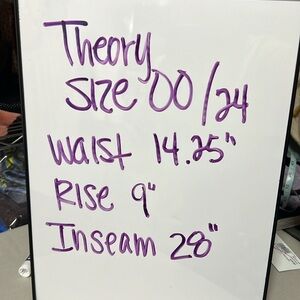 Theory
Size 00/24
Waist 14.25"
Rise 9"
Inseam 28"